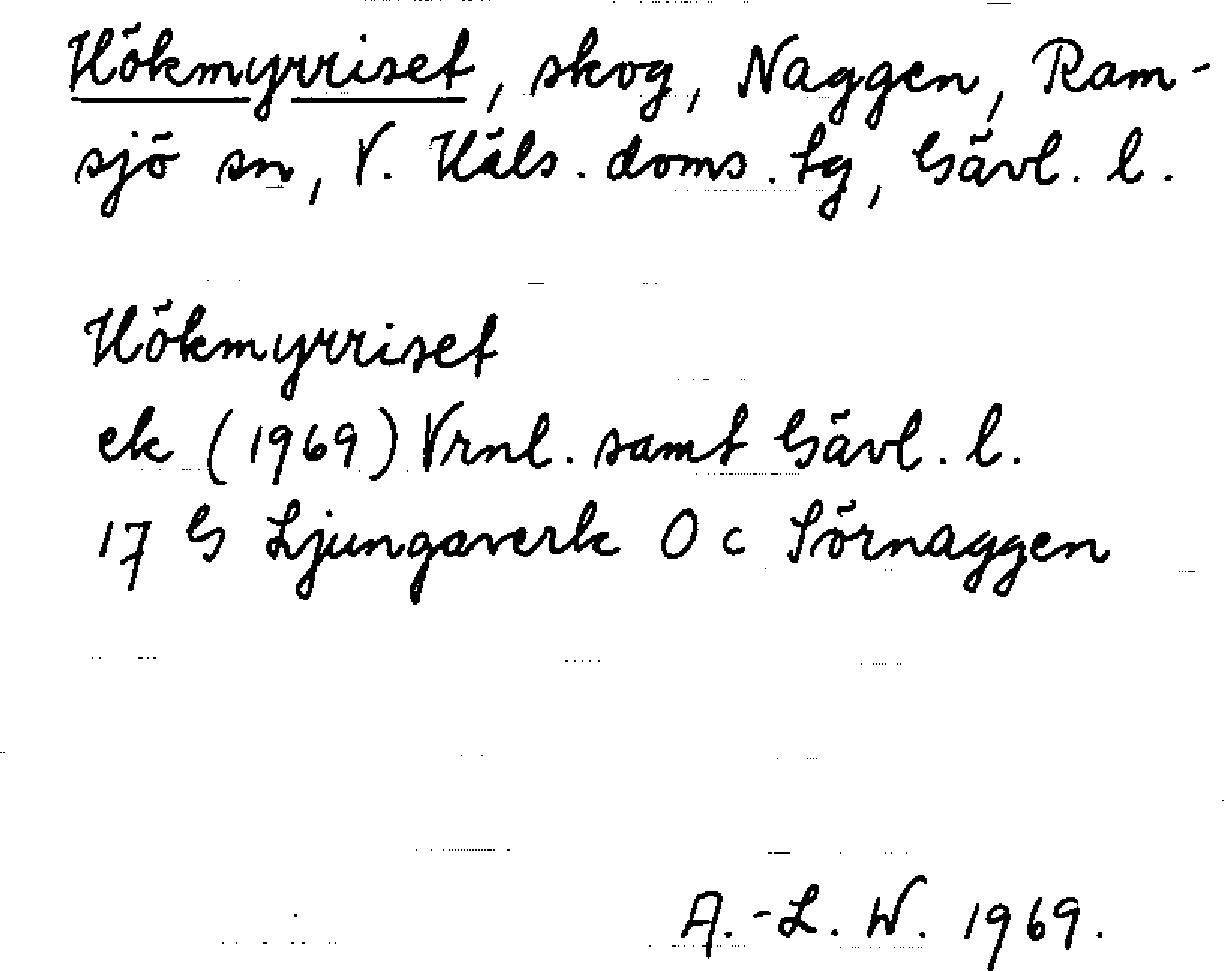 Hökmyrriset, skog, Naggen, Ram-
sjö sn, V. Häls. doms. tg, Gävl. l.
Hökmyrriset
ek (1969) Vrnl. samt Gävl. l.
17 G Ljungaverk O c Sörnaggen
A.-L. W. 1969.